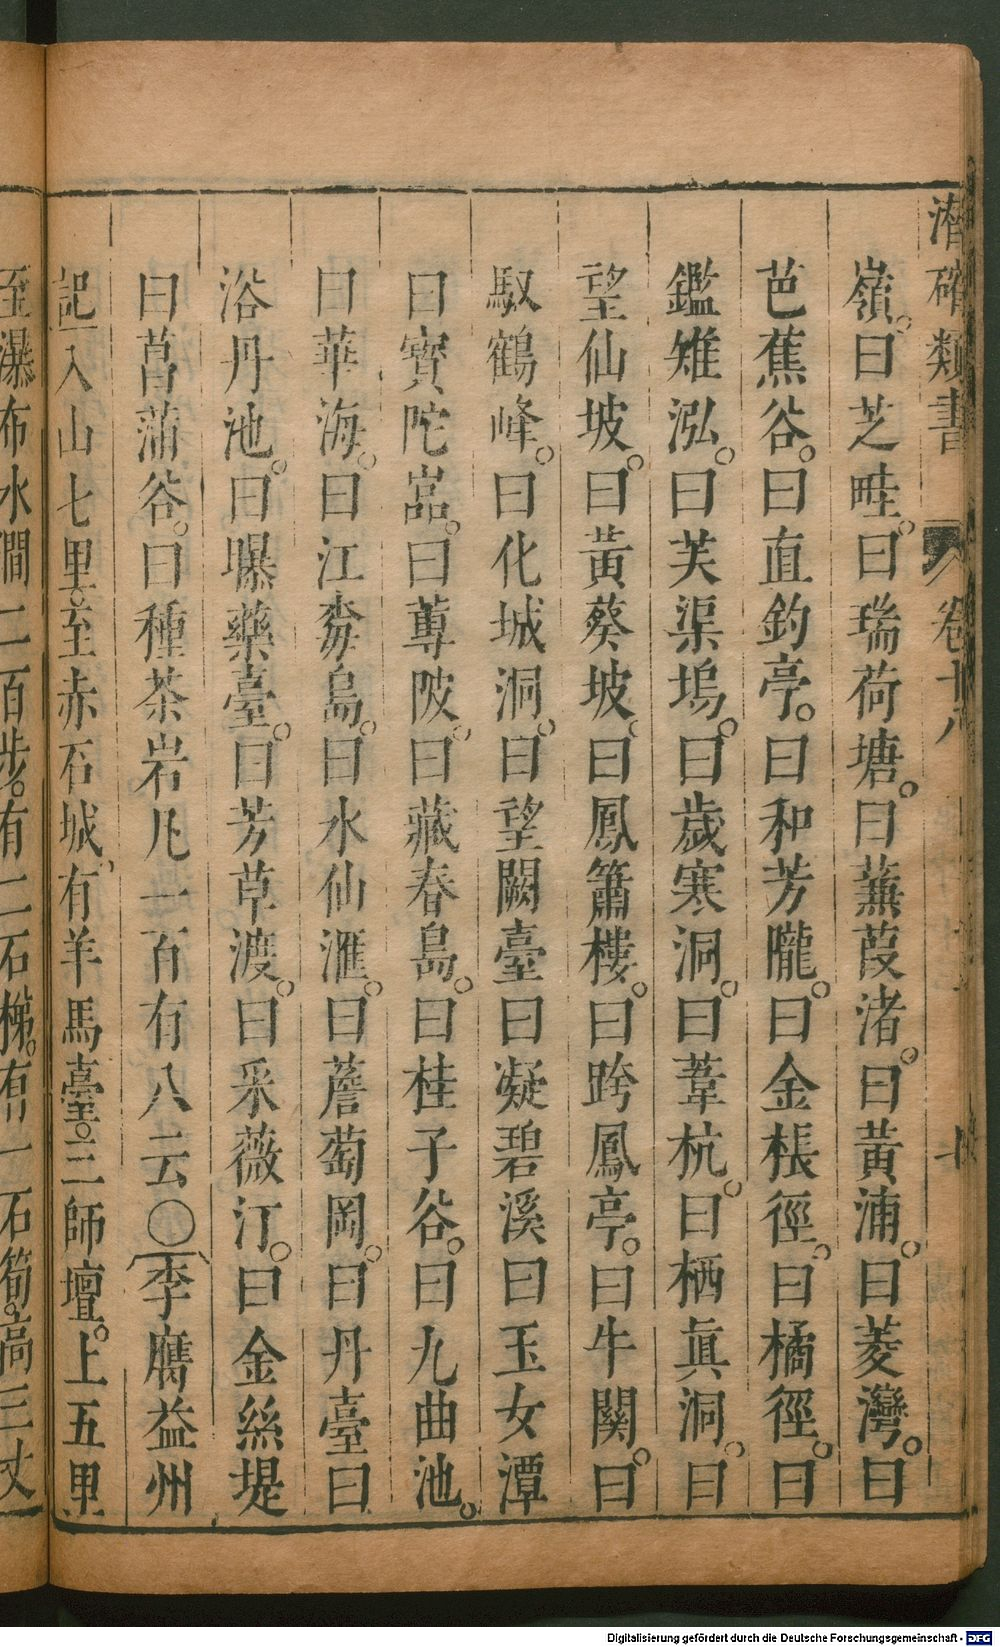 潛確類書 卷十八
嶺。曰芝畦。曰瑞荷塘。曰蒹葭渚。曰黃浦。曰菱灣。曰
芭蕉谷。曰直釣亭。曰和芳隴。曰金棖徑。曰橘徑。曰
鑑雉泓。曰芙渠塢。曰歲寒洞。曰葦杭。曰栖眞洞。曰
望仙坡。曰黃葵坡。曰鳳簫樓。曰跨鳳亭。曰牛關。曰
馭鶴峰。曰化城洞。曰望闕臺曰凝碧溪曰玉女潭
曰寶陀嵓。曰蓴陂。曰藏春島。曰桂子谷。曰九曲池。
曰華海。曰江㟁島。曰水仙滙。曰薝蔔岡。曰丹臺曰
浴丹池。曰曝藥臺。曰芳草渡。曰采薇汀。曰金絲堤
曰菖蒲谷。曰種茶岩凡一百有八云〇李膺益州
記入山七里。至赤石城。有羊馬臺。三師壇。上五里
至瀑布水澗二百步。有二石梯。有一石筍。高三丈
Digitalisierung gefördert durch die Deutsche Forschungsgemeinschaft - DFG